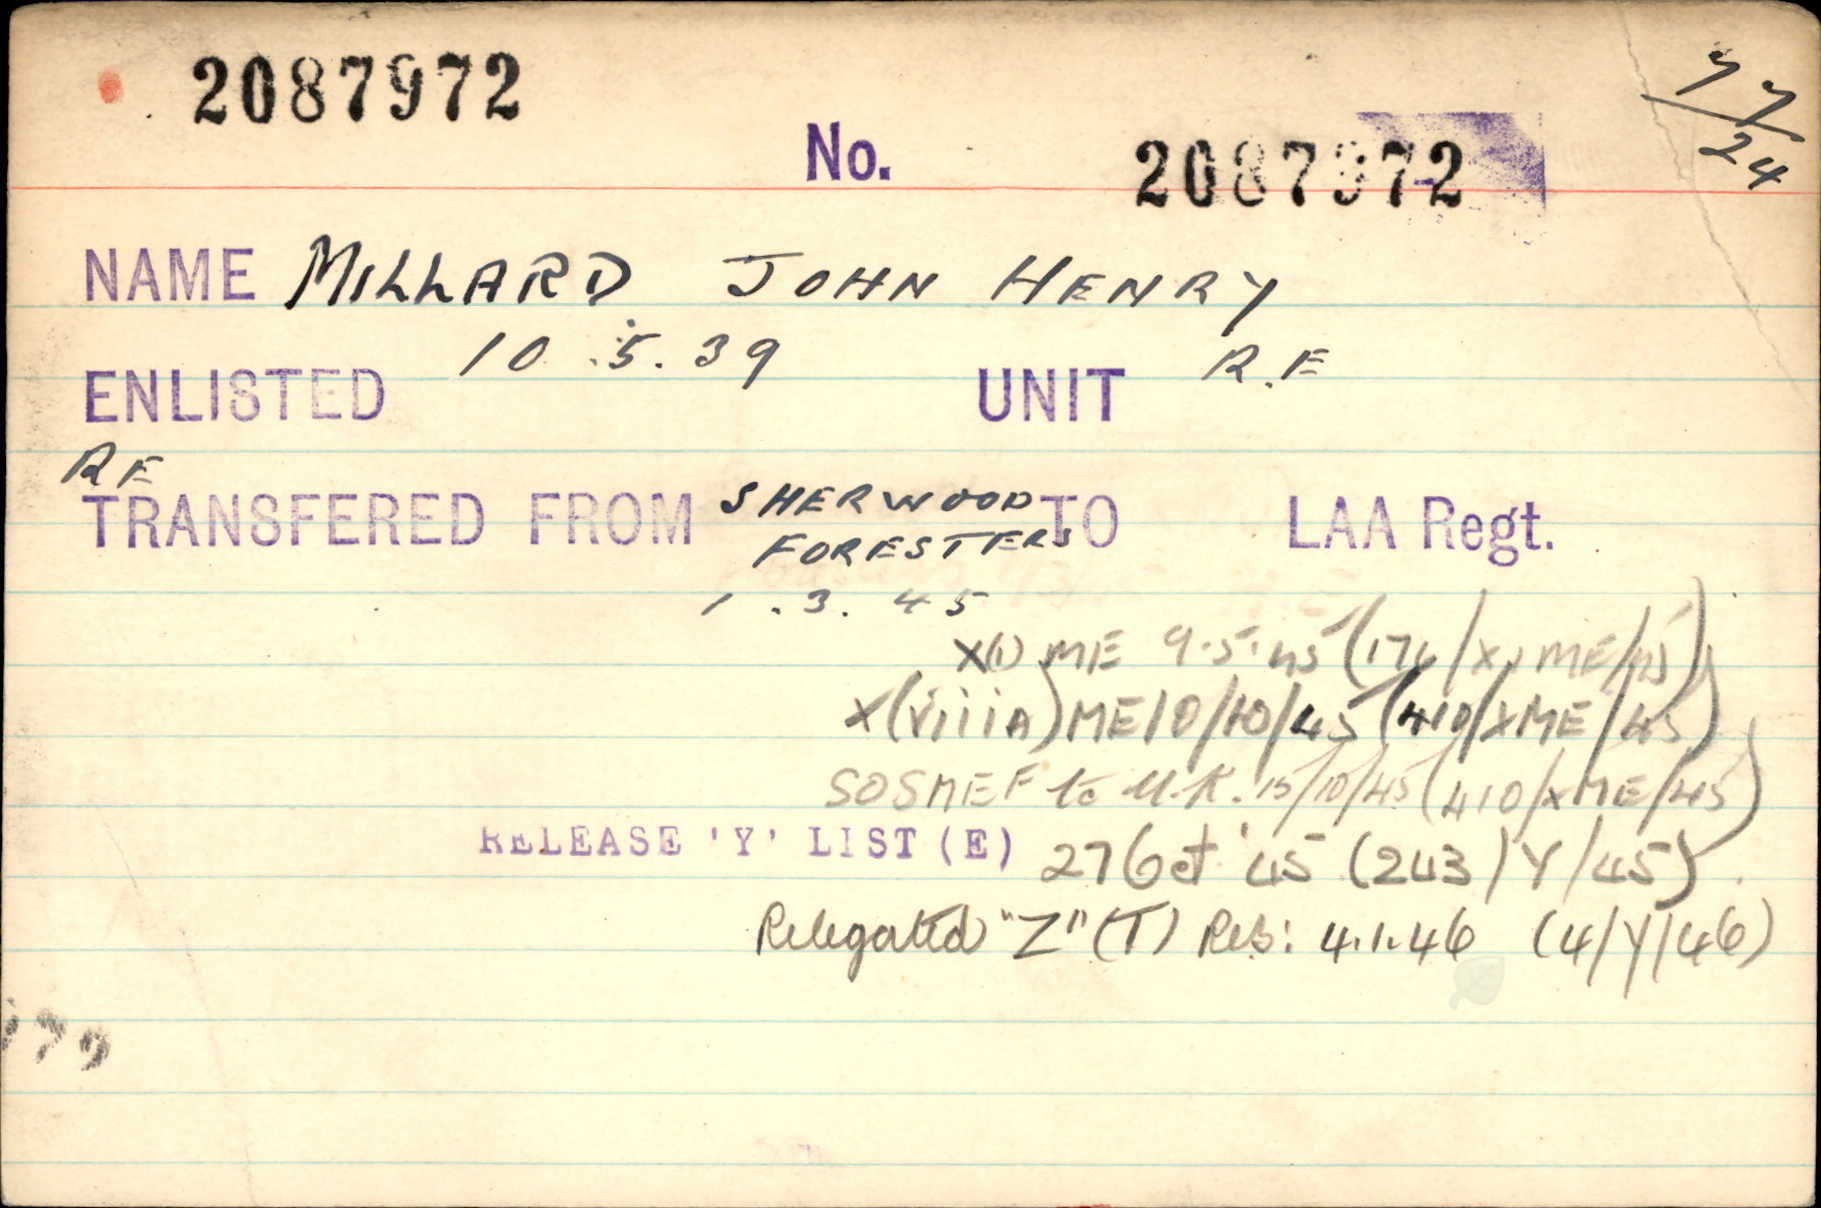 2087972
77/24
No. 2087972
NAME MILLARD JOHN HENRY
ENLISTED 10.5.39 UNIT R.E
RE
TRANSFERED FROM SHERWOOD FORESTERS TO LAA Regt.
1.3.45
X(i) ME 9.5.45 (176/X ME/45)
X(viiiA) ME 10/10/45 (410/XME/45)
SOSMEF to U.K. 15/10/45 (410/XME/45)
RELEASE 'Y' LIST (E) 27 Oct '45 (243/Y/45)
Relegated "Z" (T) Res: 4.1.46 (4/Y/46)